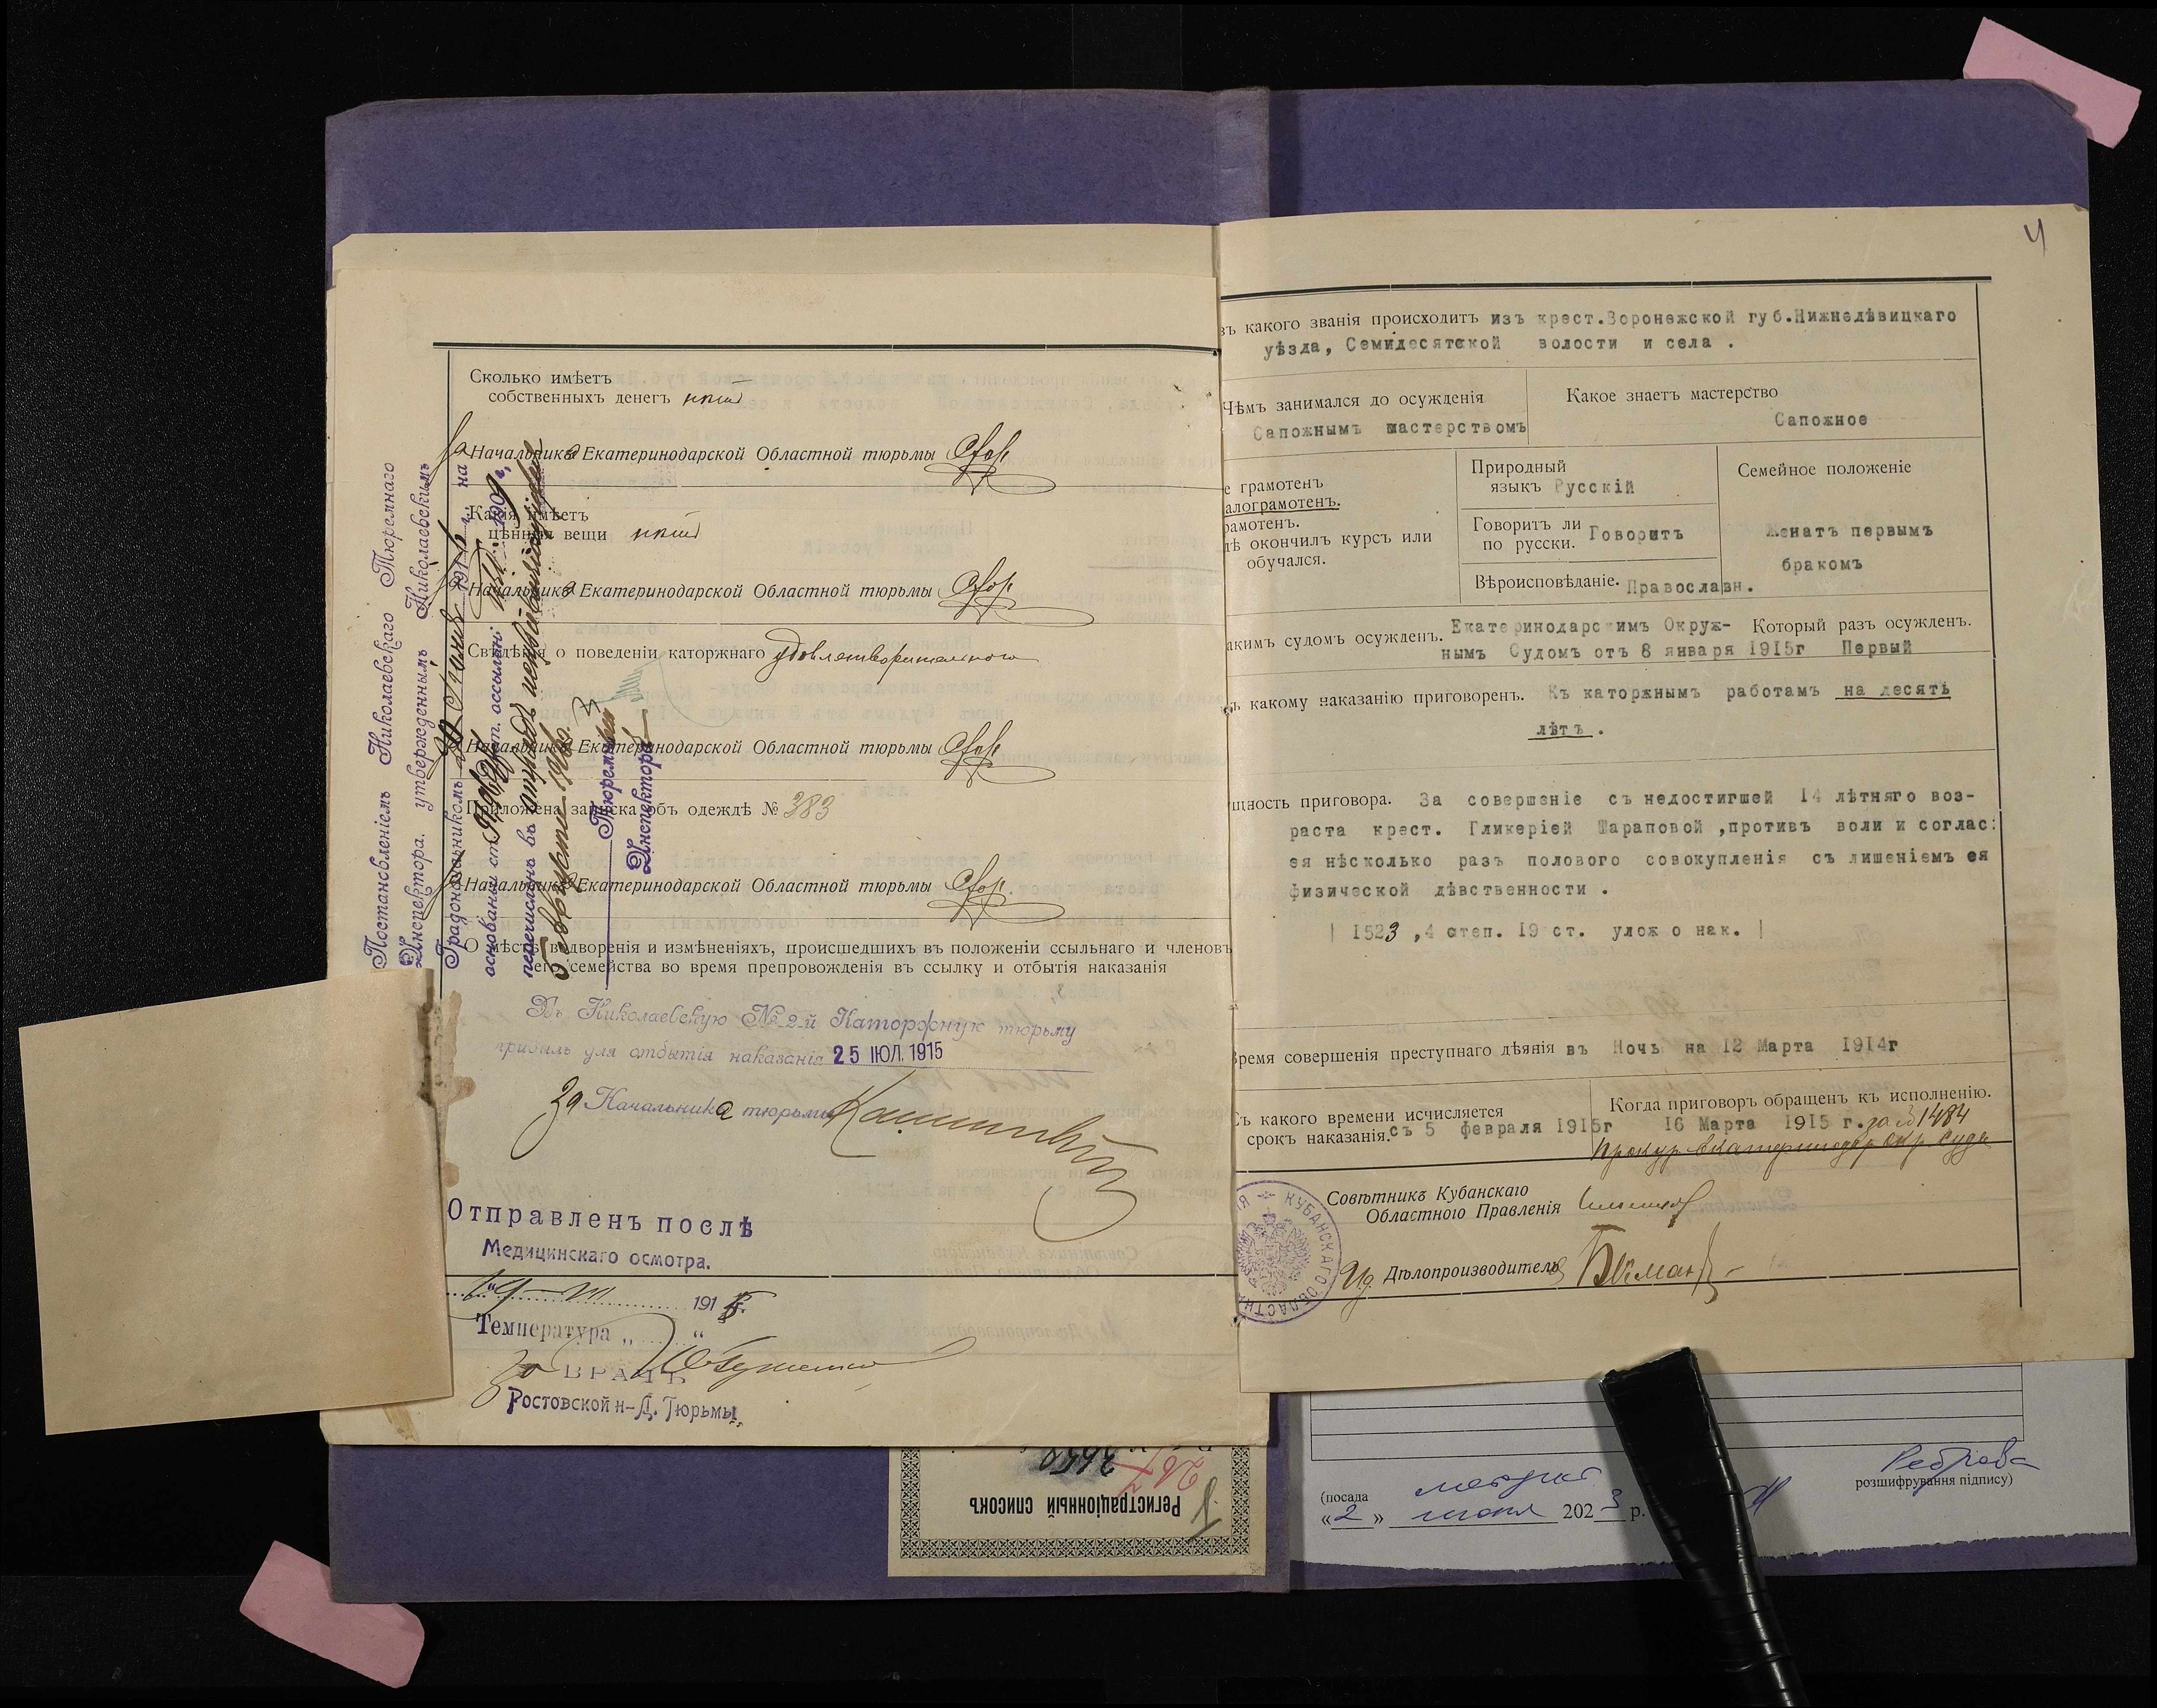 Сколько имѣетъ
собственныхъ денегъ нѣтъ
За Начальника Екатеринодарской Областной тюрьмы
Какія имѣетъ
цѣнныя вещи нѣтъ
За Начальника Екатеринодарской Областной тюрьмы
Свѣдѣнія о поведеніи каторжнаго удовлетворительного
За Начальника Екатеринодарской Областной тюрьмы
Приложена записка объ одеждѣ № 383
За Начальника Екатеринодарской Областной тюрьмы
О мѣстѣ водворенія и измѣненіяхъ, происшедшихъ въ положеніи ссыльнаго и членовъ
его семейства во время препровожденія въ ссылку и отбытія наказанія
Въ Николаевскую № 2-й Каторжную тюрьму
прибылъ для отбытія наказанія 25 ІЮЛ. 1915
За Начальника тюрьмы
Отправленъ послѣ
Медицинскаго осмотра.
19-VII 1915 г.
Температура „ “
За ВРАЧЪ
Ростовской н-Д. Тюрьмы
Постановленіемъ Николаевскаго Тюремнаго
Инспектора, утвержденнымъ Николаевскимъ
Градоначальникомъ 20 Іюня 1916 г., на
основаніи ст. уст. о ссыльн. изд. 1909 г.,
перечисленъ въ отрядъ исправляющихся
6 Февраля
Тюремный
Инспекторъ
4
въ какого званія происходитъ изъ крест.Воронежской губ.Нижнедѣвицкаго
уѣзда, Семидесятской волости и села .
Чѣмъ занимался до осужденія
Сапожнымъ мастерствомъ
Какое знаетъ мастерство
Сапожное
е грамотенъ
алограмотенъ.
рамотенъ.
дѣ окончилъ курсъ или
обучался.
Природный
языкъ Русскій
Говоритъ ли
по русски. Говоритъ
Вѣроисповѣданіе. Православн.
Семейное положеніе
Женатъ первымъ
бракомъ
акимъ судомъ осужденъ. Екатеринодарскимъ Окруж-
нымъ Судомъ отъ 8 января 1915г
Который разъ осужденъ.
Первый
ъ какому наказанію приговоренъ. Къ каторжнымъ работамъ на десять
лѣтъ .
щность приговора. За совершеніе съ недостигшей 14 лѣтняго воз-
раста крест. Гликеріей Шараповой ,противъ воли и соглас:
ея нѣсколько разъ полового совокупленія съ лишеніемъ ея
физической дѣвственности .
| 1523 ,4 степ. 19 ст. улож о нак. |
Время совершенія преступнаго дѣянія въ Ночь на 12 Марта 1914г
Съ какого времени исчисляется
срокъ наказанія. съ 5 февраля 1915г
Когда приговоръ обращенъ къ исполненію.
16 Марта 1915 г. за № 1484
Прокур. Екатеринодар. Окр. Суда
Совѣтникъ Кубанскаго
Областного Правленія
КУБАНСКАГО ОБЛАСТН
И.д. Дѣлопроизводителя
Регистраціонный списокъ
3650
267
(посада
«2» 2023 р.
Реброва
розшифрування підпису)